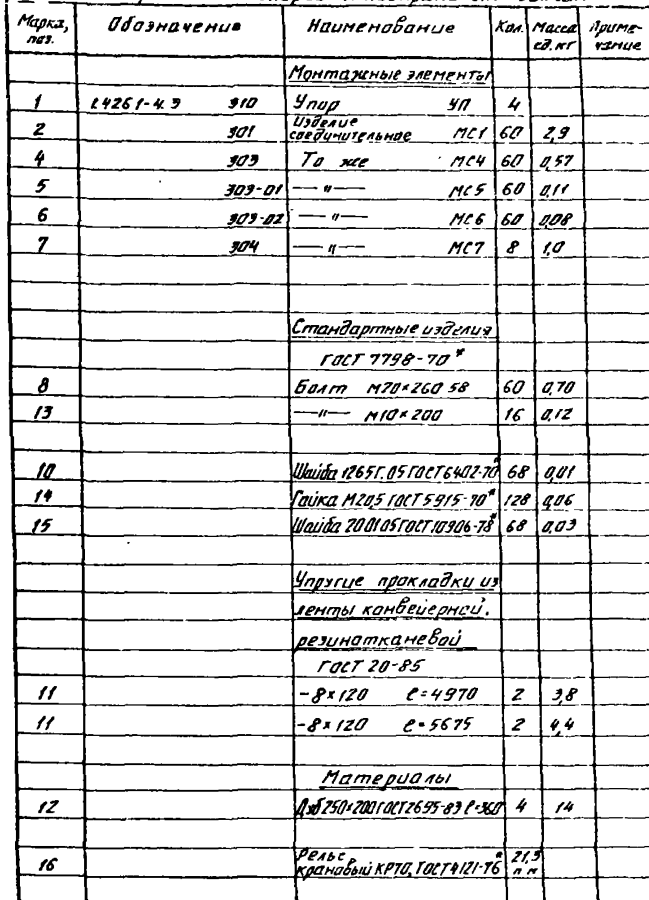 Марка, поз. Обозначение Наименование Кол. Масса ед. кг Примечание
Монтажные элементы
1 1.426.1-4.3 310 Упор УП 4
2 301 Изделие соединительное МС1 60 2,9
4 303 То же МС4 60 0,57
5 303-01 —"— МС5 60 0,11
6 303-02 —"— МС6 60 0,08
7 304 —"— МС7 8 1,0
Стандартные изделия
ГОСТ 7798-70*
8 Болт М20×260.58 60 0,70
13 —"— М10×200 16 0,12
10 Шайба 12.65Г.05 ГОСТ 6402-70* 68 0,01
14 Гайка М20.5 ГОСТ 5915-70* 128 0,06
15 Шайба 20.01.05 ГОСТ 10906-78* 68 0,03
Упругие прокладки из
ленты конвейерной,
резинотканевой
ГОСТ 20-85
11 -8×120 ℓ=4970 2 3,8
11 -8×120 ℓ=5675 2 4,4
Материалы
12 250×200 ГОСТ 2695-83 ℓ=360 4 14
16 Рельс крановый КР70, ГОСТ 4121-76* 21,5 п м